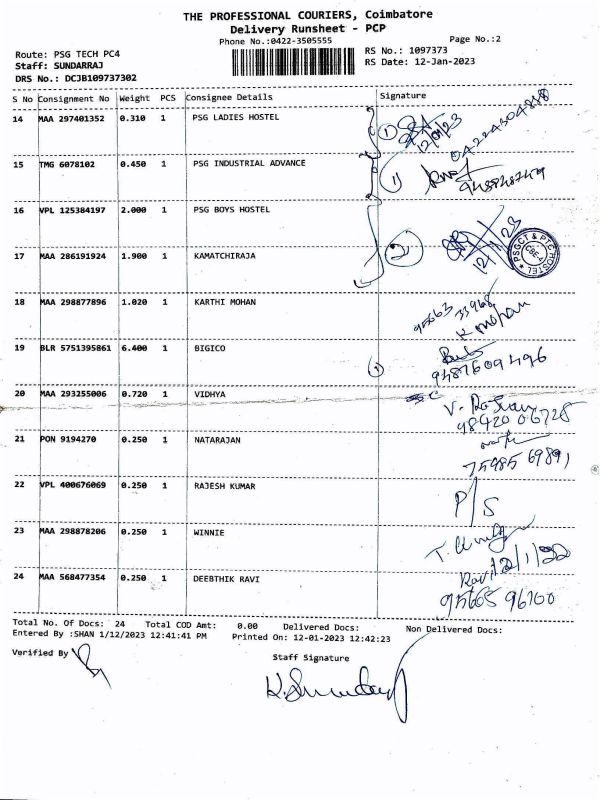 THE PROFESSIONAL COURIERS, Coimbatore
Delivery Runsheet - PCP
Phone No.:0422-3505555
Page No.:2
Route: PSG TECH PC4
RS No.: 1097373
Staff: SUNDARRAJ
RS Date: 12-Jan-2023
DRS No.: DCJB109737302
S No Consignment No Weight PCS Consignee Details Signature
14 MAA 297401352 0.310 1 PSG LADIES HOSTEL 1 12/01/23
15 TMG 6078102 0.450 1 PSG INDUSTRIAL ADVANCE 1
16 VPL 125384197 2.000 1 PSG BOYS HOSTEL 2 12/1/23 PSGCT & PTC HOSTEL CBE-4
17 MAA 286191924 1.900 1 KAMATCHIRAJA
18 MAA 298877896 1.020 1 KARTHI MOHAN 95663 33968 K mohan
19 BLR 5751395861 6.400 1 BIGICO 9487609496
20 MAA 293255006 0.720 1 VIDHYA 98420 06728
21 PON 9194270 0.250 1 NATARAJAN 75985 69891
22 VPL 400676069 0.250 1 RAJESH KUMAR P/S
23 MAA 298878206 0.250 1 WINNIE
24 MAA 568477354 0.250 1 DEEBTHIK RAVI Ravi 95665 96100
Total No. Of Docs: 24 Total COD Amt: 0.00 Delivered Docs: Non Delivered Docs:
Entered By :SHAN 1/12/2023 12:41:41 PM Printed On: 12-01-2023 12:42:23
Verified By
Staff Signature